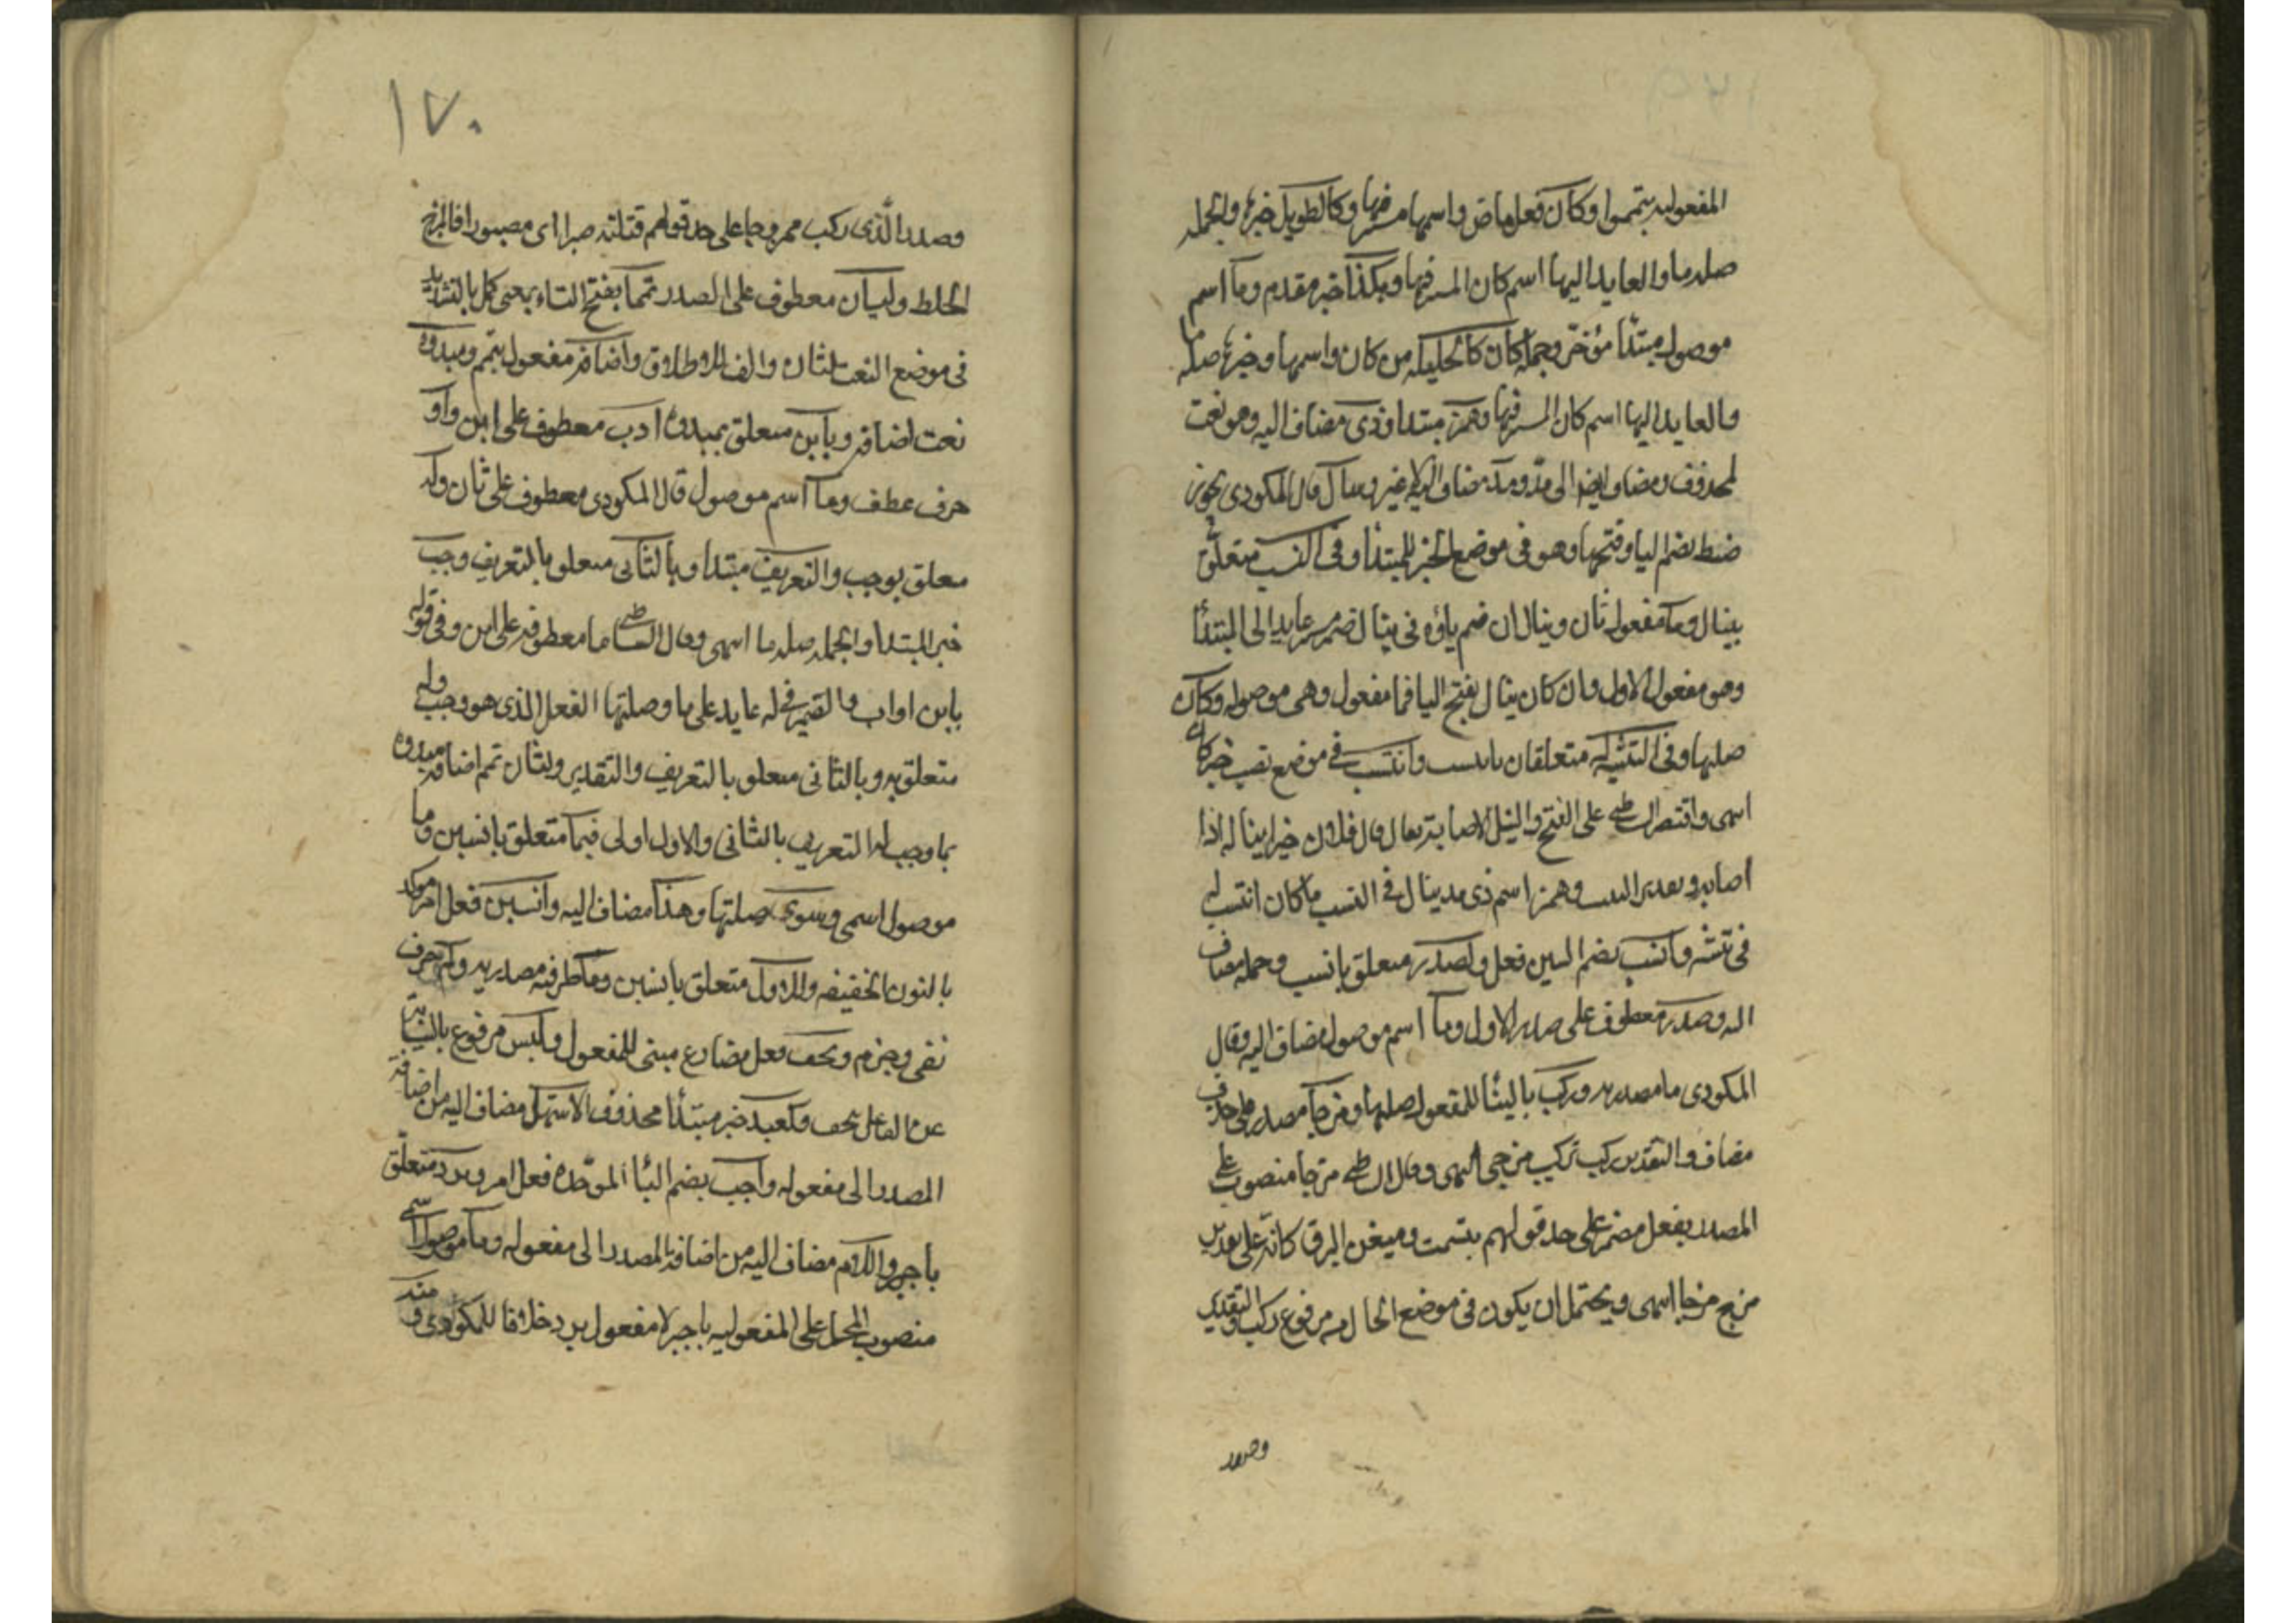 المفعولية بتمموا وكان فعل ماض واسمها مستتر فيها وكالطويل خبرها والجملة
صلة ما والعايد اليها اسم كان المستتر فيها وهكذا خبر مقدم وما اسم
موصول مبتدأ مؤخر وجملة كان كالجليلة من كان واسمها وخبرها صلة
والعايد اليها اسم كان المستتر فيها وهمز مبتدا وذى مضاف اليه وهو نعت
لمحذوف ومضاف ايضا الى مد ومد مضاف اليه لا غير وينال قال المكودى يجوز
ضبطه بضم اليا وفتحها وهو فى موضع الخبر للمبتدأ وفى النسب متعلق
بينال وما مفعول ثان وينال ان ضم ياؤه فى ينال ضمير مستتر عايد الى المبتدأ
وهو مفعول الاول وان كان ينال بفتح اليا فما مفعول وهى موصولة وكان
صلتها وفى التثنية له متعلقان بانتسب وانتسب فى موضع نصب خبر كان
اسمى واقتصر الشاطبى على الفتح والنيل الاصابة يقال قال فلان خيرا يناله اذا
اصابه وتقدير البيت وهمز اسم ذى مد ينال فى النسب ما كان انتسب له
فى تثنية وانسب بضم السين فعل ولصدر متعلق بانسب وجملة مضاف
اليه وصدر معطوف على صدر الاول وما اسم موصول مضاف اليه وقال
المكودى ما مصدرية وركب بالبنا للمفعول صلتها ومزجا مصدر على حذف
مضاف والتقدير ركب تركيب مزجى انتهى وقال الشاطبى مزجا منصوب على
المصدر بفعل مضمر على حد قولهم تبسمت وميض البرق كانه على تقدير
مزج مزجا انتهى ويحتمل ان يكون فى موضع الحال من مرفوع ركب والتقدير
وصدر
١٧٠
وصدر الذى ركب ممزوجا على حد قولهم قتلته صبرا اى مصبورا فالمزج
الخلط ولثان معطوف على لصدر تمما بفتح التاء بمعنى كمل بالتشديد
فى موضع النعت لثان والف للاطلاق واضافة مفعول بتمم ومبدوة
نعت اضافة وبابن متعلق بمبدوة اوب معطوف على ابن واو
حرف عطف وما اسم موصول قال المكودى معطوف على ثان وله
متعلق بوجب والتعريف مبتدا وبالثانى متعلق بالتعريف وجب
خبر المبتدا والجملة صلة ما اسمى وقال الشاطبى ما معطوفة على ابن وفى قوله
بابن او اب والضمير فى له عايد على ما وصلتها الفعل الذى هو وجب وله
متعلق به وبالثانى متعلق بالتعريف والتقدير ولثان تمم اضافة مبدوة
بما وجب له التعريف بالثانى والاول اولى فيما متعلق بانسبن وما
موصول اسمى وسوى صلتها وهذا مضاف اليه وانسبن فعل امر موكد
بالنون الخفيفة وللاول متعلق بانسبن وما ظرفية مصدرية ولم حرف
نفى وجزم ويخف فعل مضارع مبنى للمفعول ولبس مرفوع بالنيابة
عن الفاعل بيخف وكعبد خبر مبتدأ محذوف الاشهل مضاف اليه من اضافة
المصدر الى مفعوله واجبر بضم البا الموحدة فعل امر وبرد متعلق
باجبر واللام مضاف اليه من اضافة المصدر الى مفعوله وما موصول اسمى
منصوب المحل على المفعولية باجبر لا مفعول برد خلافا للمكودى ومنه